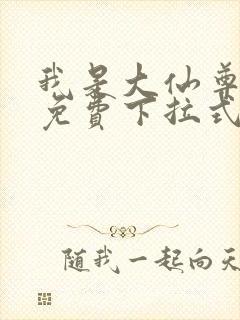 我是大仙尊
免费下拉式
随我一起向天